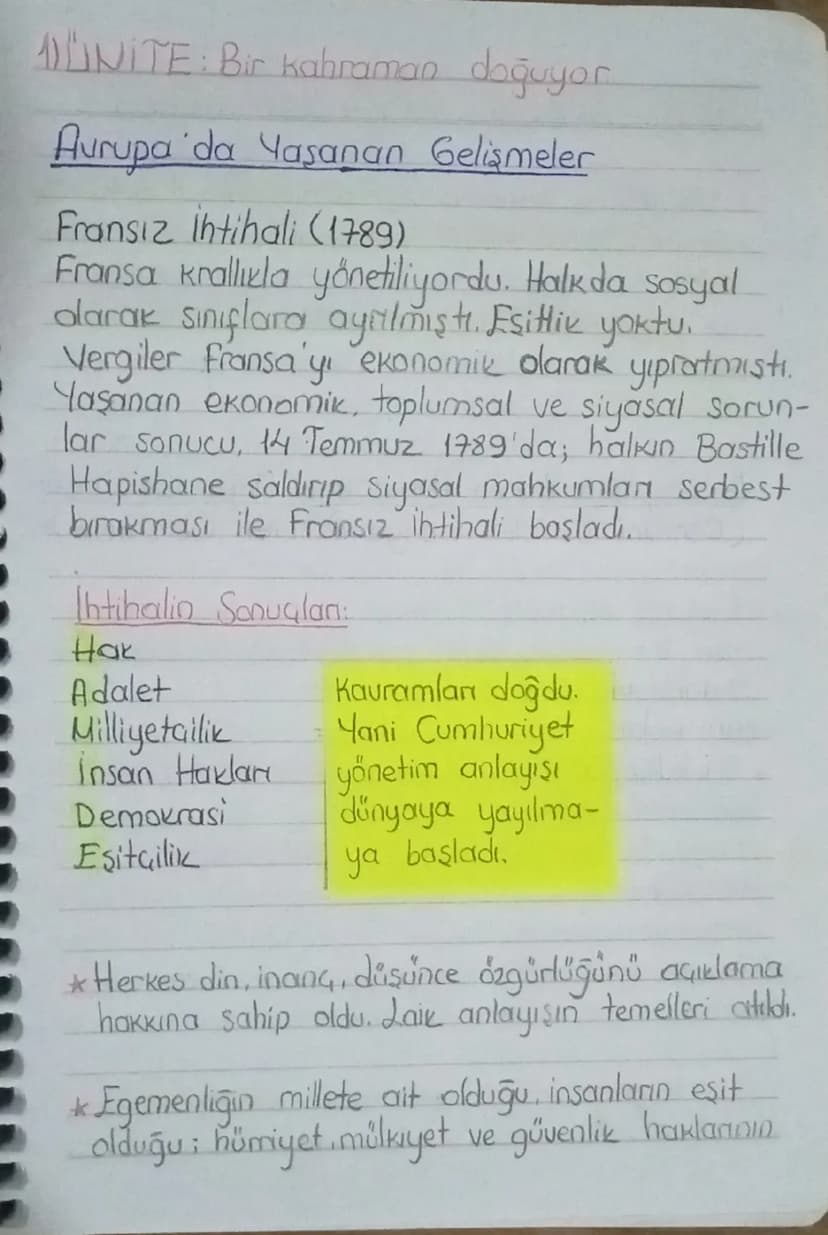 1) ÜNİTE: Bir kahraman doğuyor
Avrupa'da Yaşanan Gelişmeler
Fransız İhtihali (1789)
Fransa krallıkla yönetiliyordu. Halkda sosyal
olarak sınıflara ayrılmıştı. Eşitlik yoktu.
Vergiler Fransa'yı ekonomik olarak yıpratmıştı.
Yaşanan ekonomik, toplumsal ve siyasal sorun-
lar sonucu, 14 Temmuz 1789'da; halkın Bastille
Hapishane saldırıp siyasal mahkumları serbest
bırakması ile Fransız ihtihali başladı.
İhtihalin Sonuçları:
Hak
Adalet
Milliyetçilik
İnsan Hakları
Demokrasi
Eşitçilik
Kavramları doğdu.
Yani Cumhuriyet
yönetim anlayışı
dünyaya yayılma-
ya başladı.
* Herkes din, inanç, düşünce özgürlüğünü açıklama
hakkına sahip oldu. Laik anlayışın temelleri atıldı.
* Egemenliğin millete ait olduğu, insanların eşit
olduğu; hürriyet, mülkiyet ve güvenlik haklarının